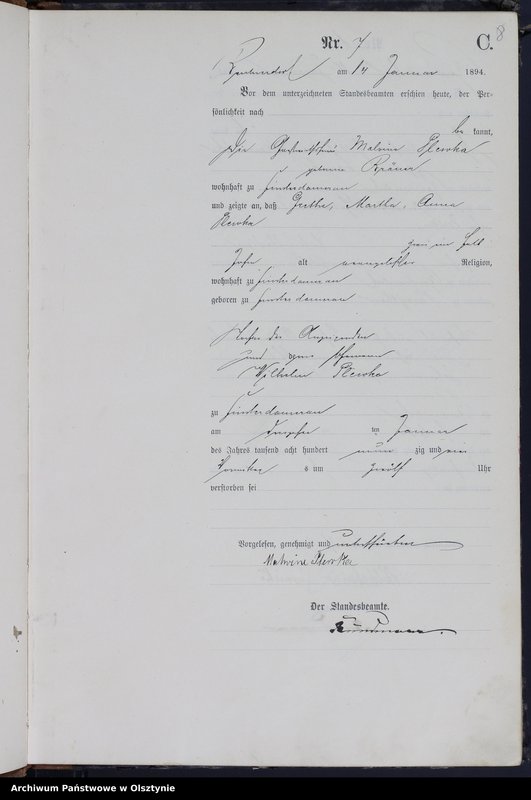 8
Nr. 7 C.
am 14 Januar 1894.
Vor dem unterzeichneten Standesbeamten erschien heute, der Per-
sönlichkeit nach
be kannt,
Die Malwine Plewka
geborene
wohnhaft zu Hinterdamerau
und zeigte an, daß Grethe, Martha, Anna
Plewka
zwei ein halb
Jahr alt evangelischer Religion,
wohnhaft zu Hinterdamerau
geboren zu Hinterdamerau
Tochter der Anzeigenden
und deren Ehemann
Wilhelm Plewka
zu Hinterdamerau
am ten Januar
des Jahres tausend acht hundert neun zig und vier
Vormittag s um zwölf Uhr
verstorben sei
Vorgelesen, genehmigt und unterschrieben
Malwine Plewka
Der Standesbeamte.
Archiwum Państwowe w Olsztynie